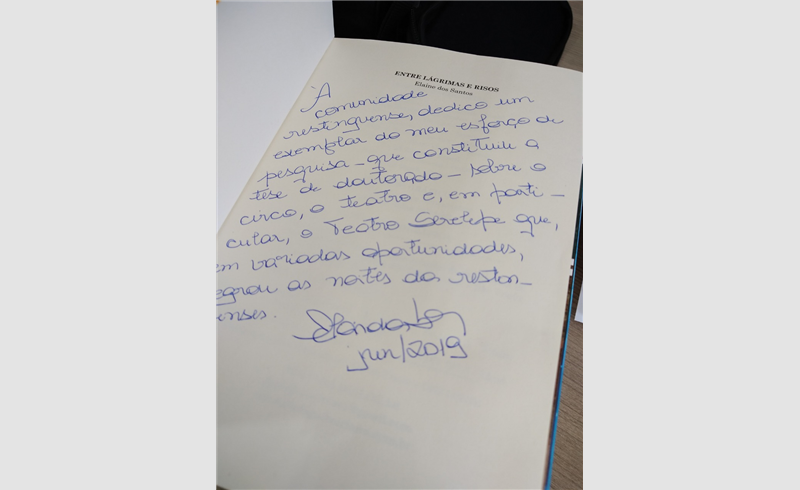 ENTRE LÁGRIMAS E RISOS
Elaine dos Santos
À
comunidade
restinguense, dedico um
exemplar do meu esforço de
pesquisa - que constituiu a
tese de doutorado - sobre o
circo, o teatro e, em parti-
cular, o Teatro Serelepe que,
em variadas oportunidades,
egrou as noites da restin-
enses.
jun/2019